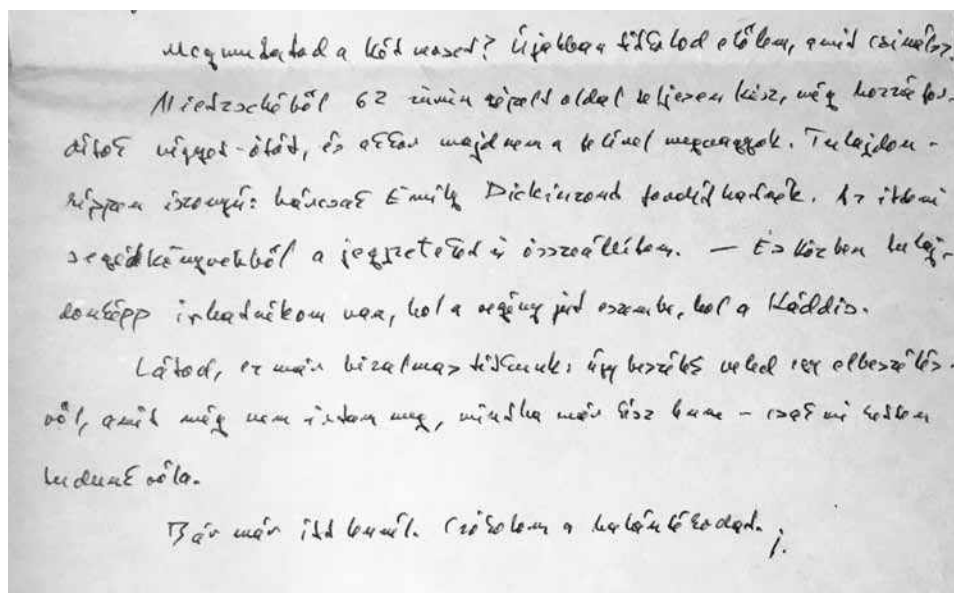 Megmutatod a két mesét? Újabban titkolod előlem, amit csinálsz.
Nietzschéből 62 simán gépelt oldal teljesen kész, még hozzá for-
dítok négyet-ötöt, és akkor majdnem a felével megvagyok. Tulajdon-
képpen iszonyú: bárcsak Emily Dickinsont fordíthatnék. Az itteni
segédkönyvekből a jegyzeteket is összeállítom. — És közben tulaj-
donképp írhatnékom van, hol a regény jut eszembe, hol a Káddis.
Látod, ez már bizalmas titkunk: úgy beszélek veled egy elbeszélés-
ről, amit még nem írtam meg, mintha már kész lenne – csak mi ketten
tudunk róla.
Bár már itt lennél. Csókolom a halántékodat. j.